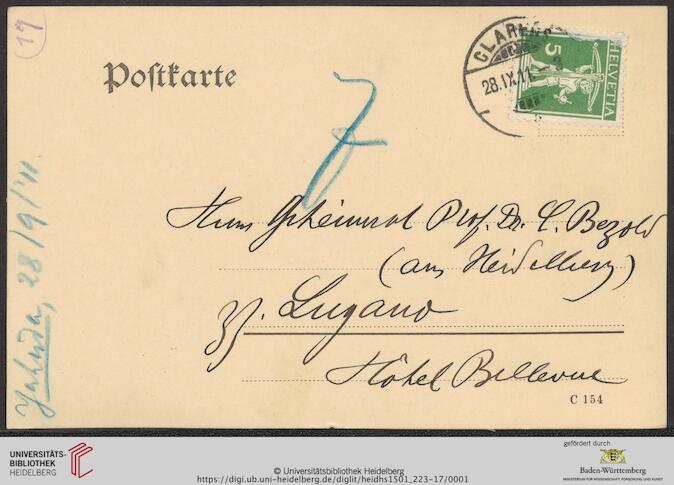 17
Postkarte
CLARENS
28.IX.11
HELVETIA
5
Yahuda, 28/9/'11.
Herrn Geheimrat Prof. Dr. C. Bezold
(aus Heidelberg)
Lugano
Hôtel Bellevue
C 154
UNIVERSITÄTS-
BIBLIOTHEK
HEIDELBERG
© Universitätsbibliothek Heidelberg
https://digi.ub.uni-heidelberg.de/diglit/heidhs1501_223-17/0001
gefördert durch
Baden-Württemberg
MINISTERIUM FÜR WISSENSCHAFT, FORSCHUNG UND KUNST